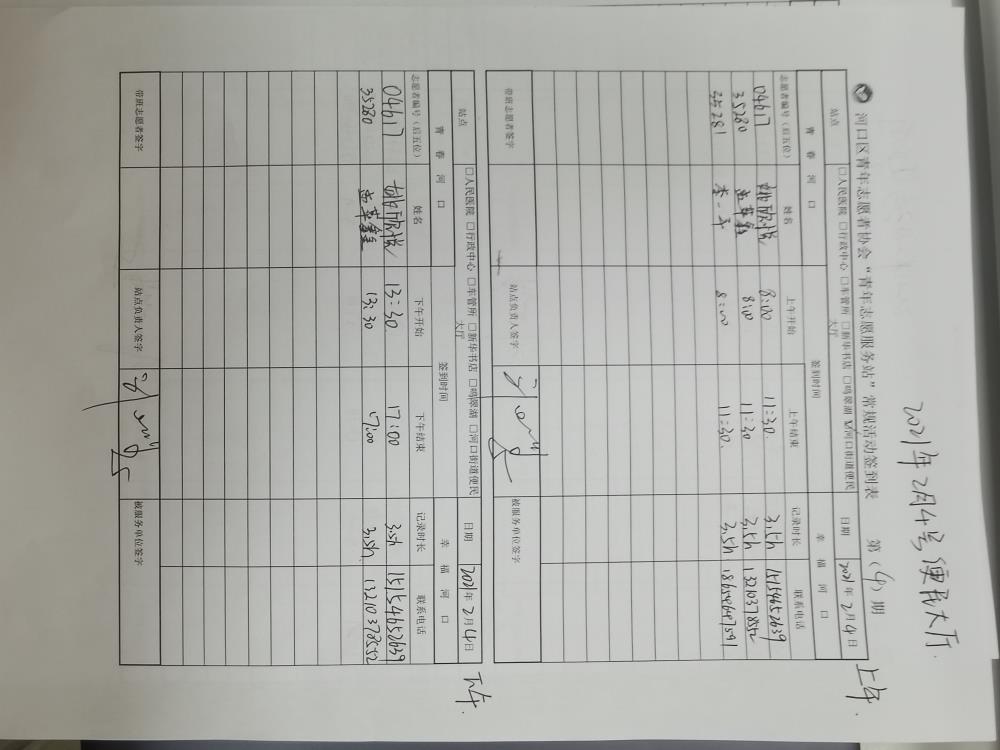 2021年2月4号便民大厅.
河口区青年志愿者协会“青年志愿服务站”常规活动签到表 第（4）期
上午.
站点 □人民医院 □行政中心 □车管所 □新华书店 □鸣翠湖 ☑河口街道便民大厅 日期 2021年2月4日
青春河口 签到时间 幸福河口
志愿者编号（后五位） 姓名 上午开始 上午结束 记录时长 联系电话
04617 姚欣悦 8:00 11:30. 3.5h 15154652639
35280 8:00 11:30 3.5h 13210378552
35281 李一平 8:00 11:30. 3.5h
带班志愿者签字 站点负责人签字 被服务单位签字
下午.
站点 □人民医院 □行政中心 □车管所 □新华书店 □鸣翠湖 □河口街道便民大厅 日期 2021年2月4日
青春河口 签到时间 幸福河口
志愿者编号（后五位） 姓名 下午开始 下午结束 记录时长 联系电话
04617 姚欣悦 13:30 17:00 3.5h 15154652639
35280 13:30 17:00 3.5h 13210378552
带班志愿者签字 站点负责人签字 被服务单位签字